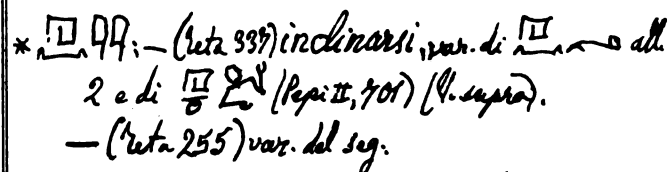 * 𓇋𓇋: — (Teta 337) inclinarsi, var. di all.
2 e di (Pepi II, 701) (V. supra).
— (Teta 255) var. del seg.